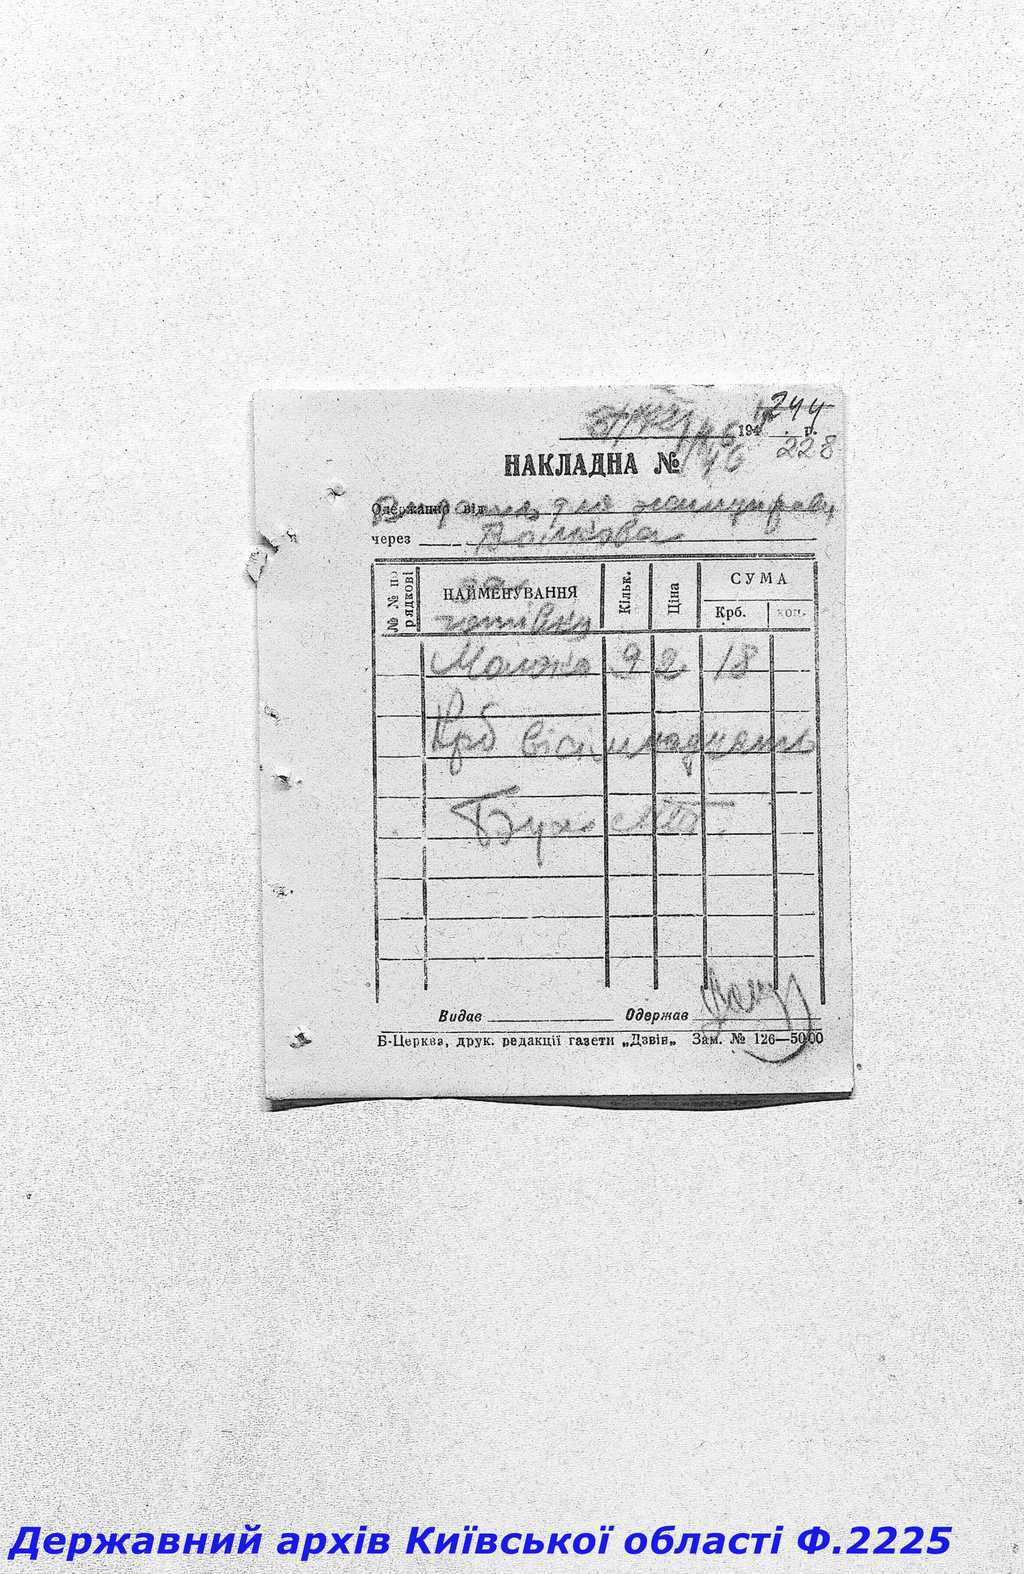 194 г. 244
228
НАКЛАДНА № 46
Одержанно від для
через Волкова
№ № по рядкові НАЙМЕНУВАННЯ Кільк. Ціна СУМА
Крб. коп.
за готівку
Молоко 9 2 18
Крб вісімнадцять
Бух.
Видав Одержав
Б-Церква, друк. редакції газети „Дзвін„ Зам. № 126—5000
Державний архів Київської області Ф.2225